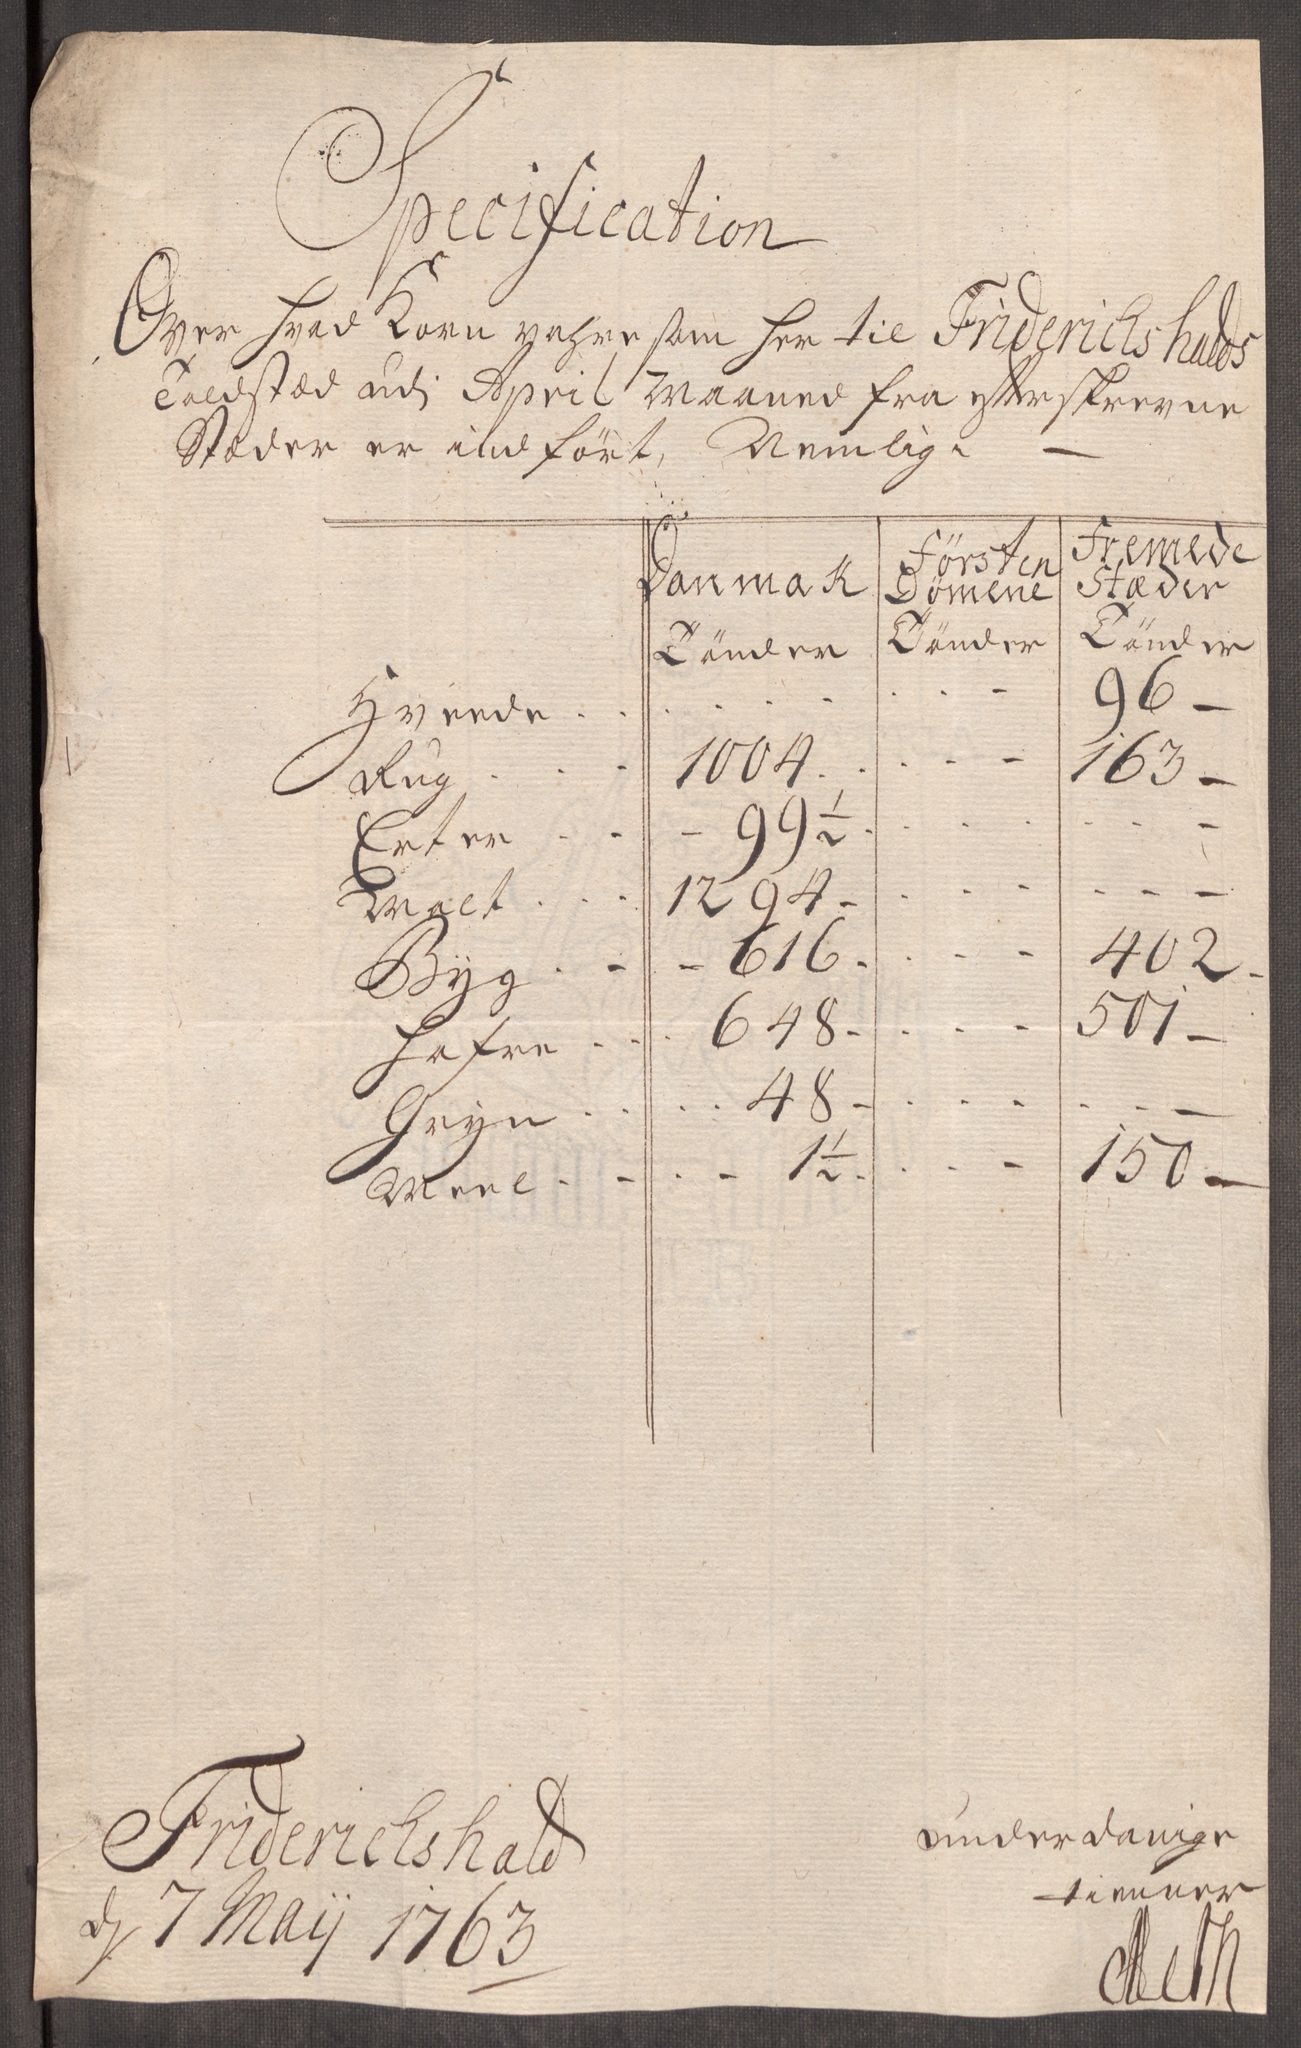 Specification
Over hvad Korn vahre som her til Friderichshalds
Toldstæd udj April Maaned fra efterskrevne
Stæder er indført, Nemlig.
Danmak Försten Dömene Fremede Stæder
Tönder Tönder Tönder
Hveede . . . . . . . . . - 96 -
Rug . . - 1004 . . . . - 163 -
Erter . - - 99 1/2 . . . . - - -
Malt . . . 1294 - . . - - - -
Byg . - - 616 . . . - 402 -
Hafre . . . 648 - . . - 501 -
Gryn . . . . 48 - . . - . . -
Meel . - - - 1 1/2 . . . - 150 -
Friderichshald
d 7 Maij 1763
underdanige
tienner